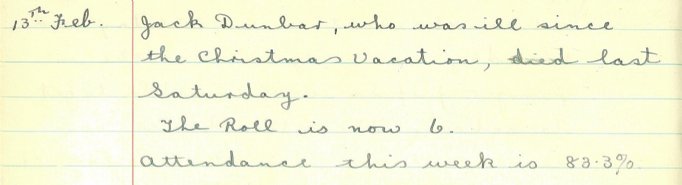 13th Feb. Jack Dunbar, who was ill since
the Christmas Vacation, died last
Saturday.
The Roll is now 6.
Attendance this week is 83.3%.